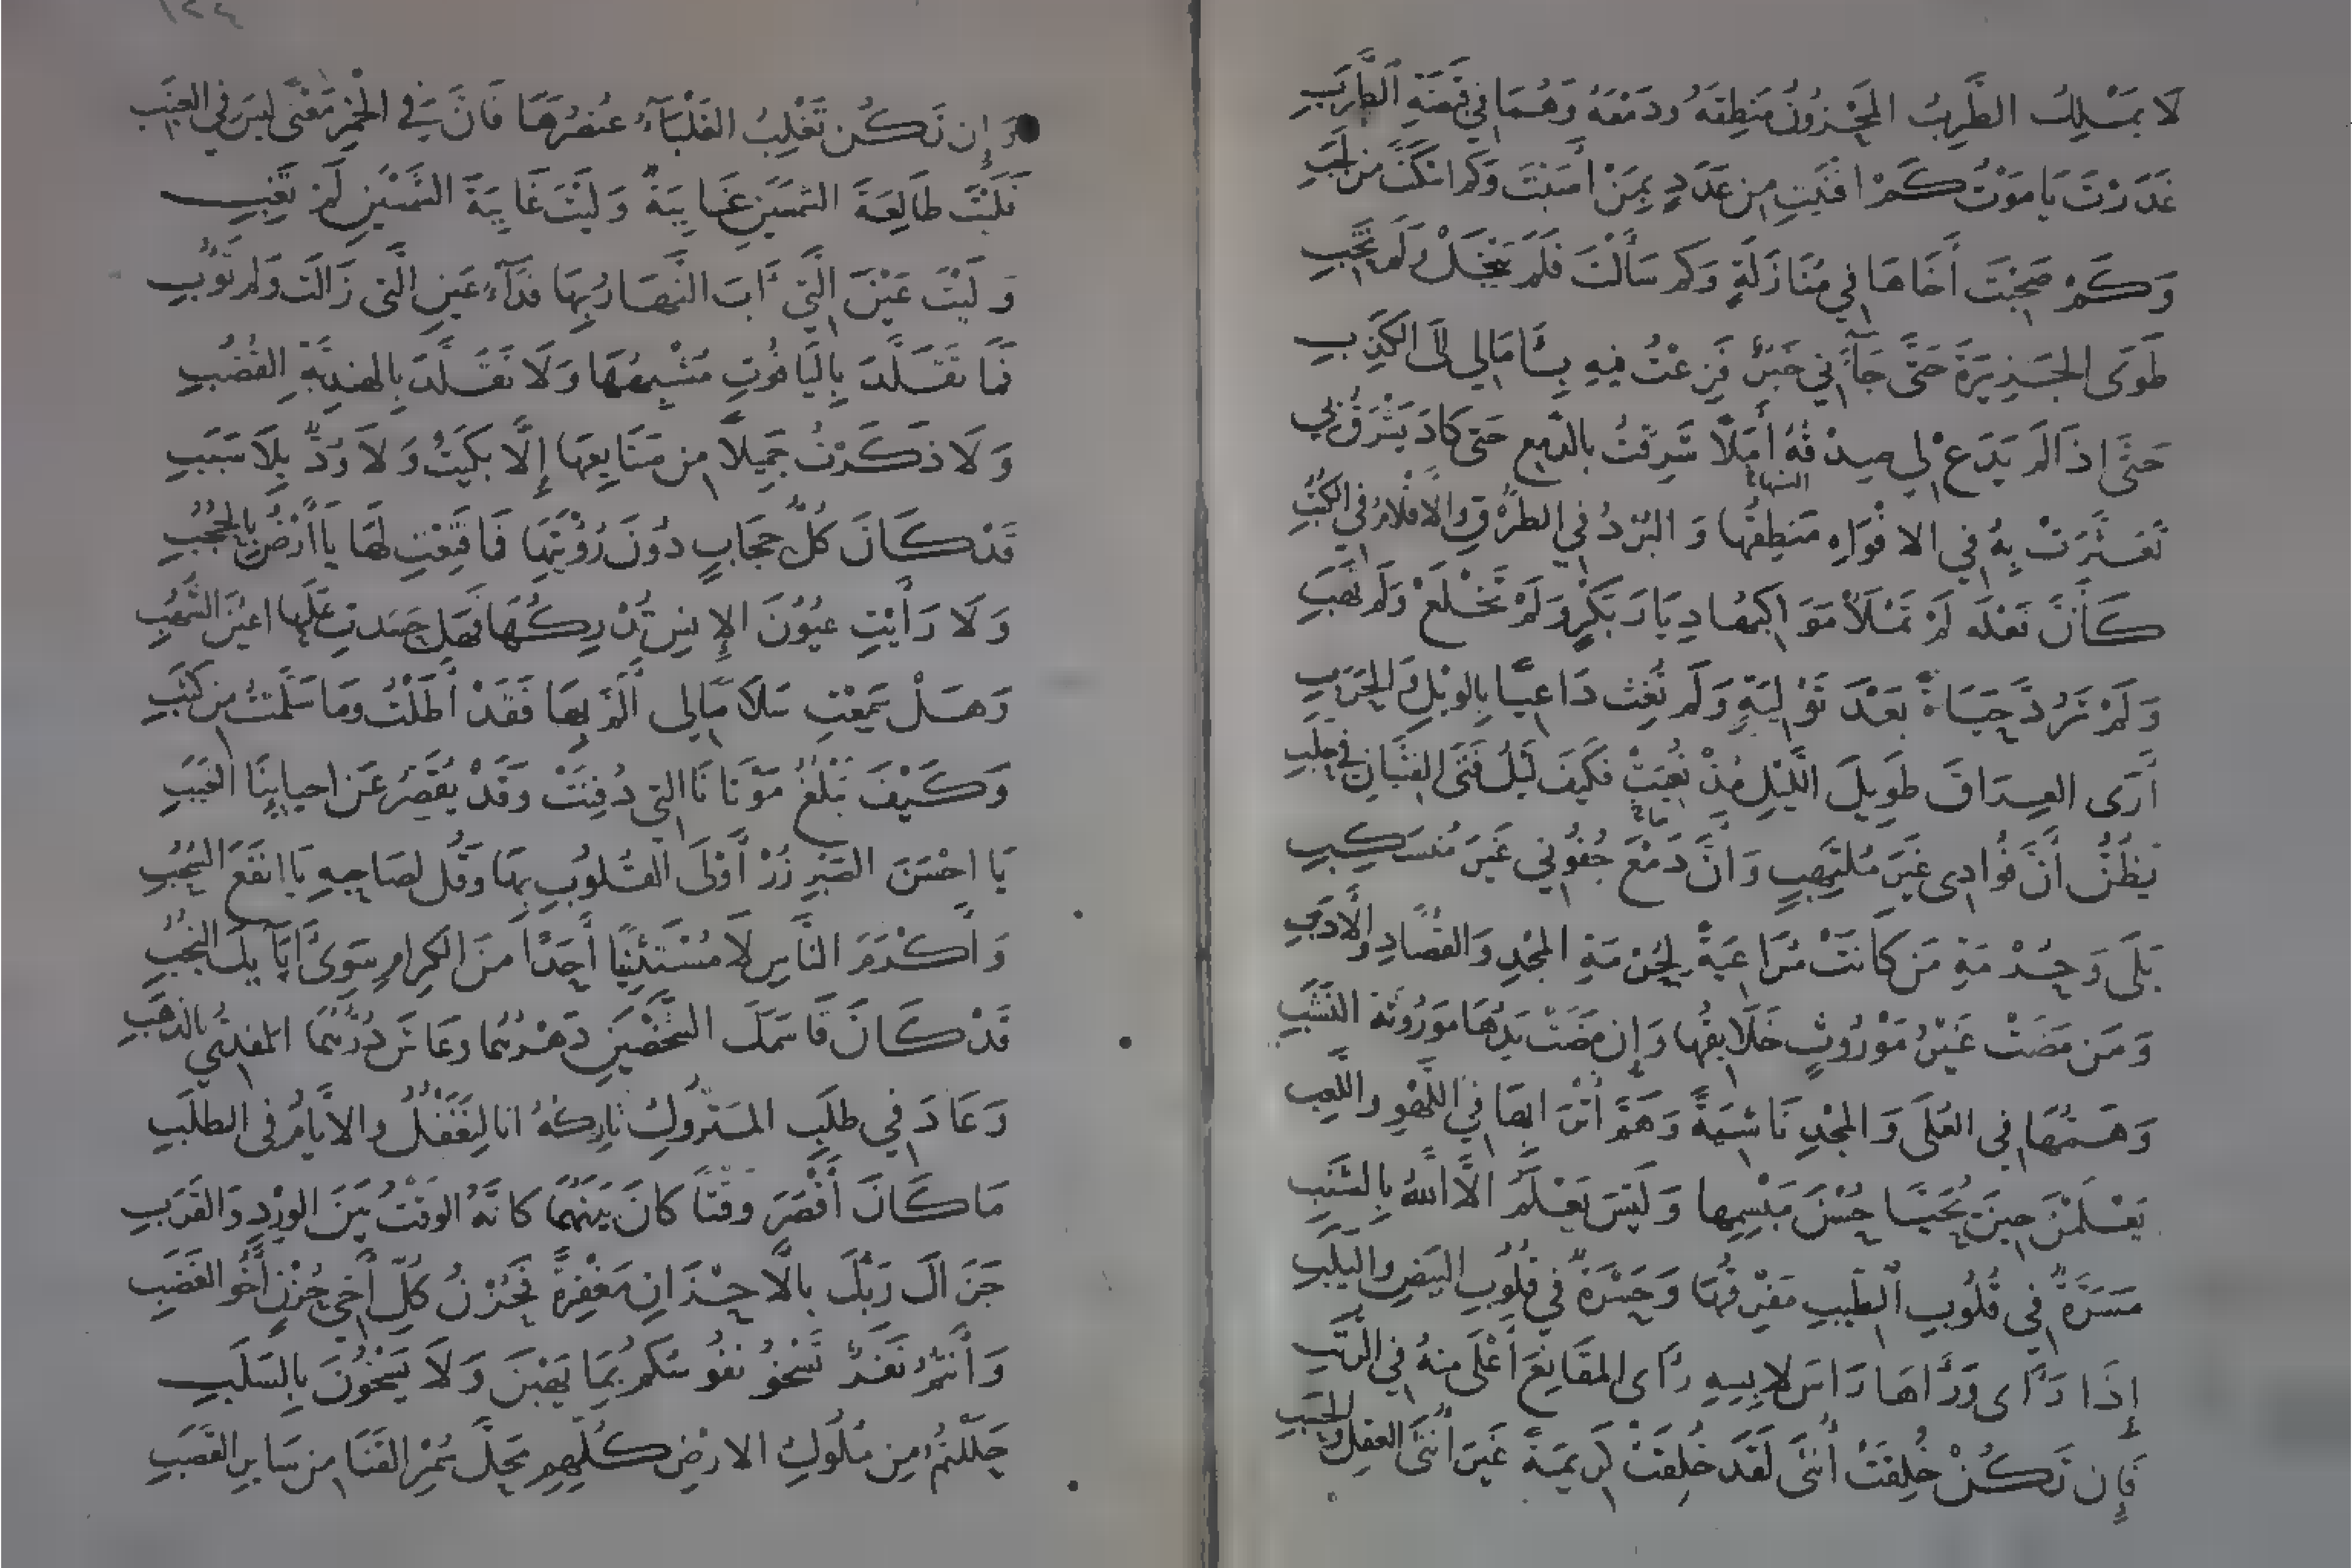 لَا يَمْلِكُ الطَّرِبُ المَحْزُونُ مَنطِقَهُ وَدَمْعَهُ وَهُمَا فِي قَبْضَةِ الطَّرَبِ
غَدَرْتَ يَا مَوْتُ كَمْ افْنَيْتَ مِن عَدَدٍ بِمَنْ أَصَبْتَ وَكَم اسْكَتَّ مِن لَجَبِ
وَكَمْ صَحِبْتَ أَخَاهَا فِي مُنَازَلَةٍ وَكَم سَأَلْتَ فَلَم يَبْخَلْ وَلَم تَخِبِ
طَوَى الجَزِيرَةَ حَتَّى جَآءَنِي خَبَرٌ فَزِعْتُ فِيهِ بِآمَالِي إِلَى الكَذِبِ
حَتَّى اِذَا لَم يَدَعْ لِي صِدْقُهُ أَمَلاً شَرِقْتُ بالدَّمعِ حَتَى كَادَ يَشْرَقُ بِي
تَعَثَّرَتْ بِهُ فِي الافْوَاهِ مَنطِقُهَا وَ البُرْدُ فِي الطُّرْقِ وَالاقْلَامُ فِي الكُتُبِ
السنها
كَأَنَّ فَعْلَه لَمْ تَمْلَأْ مَوَاكِبُهَا دِيَارَ بَكْرٍ وَلَمْ تَخْلَعْ وَلَم تَهَبِ
وَلَمْ تَرُدَّ حَيَاةً بَعْدَ تَوْلِيَةٍ وَلَم تُغِث دَاعِيًا بِالوَيْلِ وَالحَرَبِ
أَرَى العِرَاقَ طَوِيلَ اللَّيْلِ مُذْ نُعِيَتْ فَكَيفَ لَيْلُ فَتَى الفِتْيَانِ فِي حَلَبِ
يَظُنُّ أَنَّ فُؤَادِى غَيْرَ مُلتَهِبٍ وَأَنَّ دَمْعَ جُفُونِي غَيرَ مُنسَكِبِ
بَلَى وَحُرْمَةِ مَن كَانَتْ مُرَاعِيَةً لِحُرْمَةِ المجْدِ وَالقُصَّادِ وَالأَدَبِ
وَمَن مَضَتْ غَيْرُ مَوْرُوثٍ خَلَايِقُهَا وَإِن مَضَتْ يَدُهَا مَورُوثَة النَّشَبِ
وَهَمُّهَا فِي العُلَى وَالمجْدِ نَاشِيَةً وَهَمُّ أَتْرَابِهَا فِي اللَّهْوِ واللَّعِبِ
يَعْلَمْنَ حِينَ تُحَيَّا حُسْنَ مَبْسِمِها وَلَيْسَ يَعْلَمُ الَّا اللهُ بِالشَّنَبِ
مَسَرَّةٌ فِي قُلُوبِ الطِّيبِ مَفْرِقُهَا وَحَسْرَةٌ فِي قُلُوبِ البَيضِ واليَلَبِ
إِذَا رَأَى وَرَأهَا رَاسَ لابِسِهِ رَأَى المقَانِعَ أَعْلَى مِنهُ فِي الرُّتَبِ
فَإِن تَكُنْ خُلِقَتْ أُنثَى لَقَد خُلِقَتْ كَرِيمَةً غَيرَ أُنثَى العَقلِ وَالحَسَبِ
وَإِن تَكُن تَغْلِبُ الغَلْبَآءُ عُنصُرَهَا فَانَّ فِي الخَمْرِ مَعْنًى لَيسَ فِي العِنَبِ
فَلَيْتَ طَالِعَةَ الشَّمْسَيْنِ غَايِبَةٌ وَلَيْتَ غَايِبَةَ الشَّمْسَيْنِ لَمْ تَغِبِ
وَلَيْتَ عَيْنَ الَّتِي آبَ النَّهَارُ بِهَا فِدَآءُ عَيْنِ الَّتي زَالَت وَلم تَوُبِ
فَمَا تَقَلَّدَ بِاليَاقُوتِ مُشْبِهُهَا وَلَا تَقَلَّدَ بِالهِندِيَّةِ القُضُبِ
وَلَا ذَكَرْتُ جَمِيلاً مِن صَنَايِعِهَا إِلَّا بَكَيْتُ وَلَا وُدٌّ بِلَا سَبَبِ
قَدْ كَانَ كُلُّ حِجَابٍ دُونَ رُؤْيَتِهَا فَمَا قَنِعْتِ لَهَا يَا أَرْضُ بِالحُجُبِ
وَلَا رَأَيْتِ عُيُونَ الإِنِسِ تُدْرِكُهَا فَهَل حَسَدتِ عَلَيهَا اعيُنَ الشُّهُبِ
وَهَلْ سَمِعْتِ سَلَامًا لِي أَلَمَّ بِهَا فَقَدْ أَطَلْتُ وَمَا سَلَّمتُ مِن كَثَبِ
وَكَيْفَ تَبْلُغُ مَوْتَانَا التِي دُفِنَتْ وَقَدْ يُقَصِّرُ عَن احيايِنَا الغَيَبِ
يَا احْسَنَ الصَّبْرِ زُرْ أَوْلَى القُلُوبِ بِهَا وَقُل لصَاحِبِهِ يَا انفَعَ السُّحُبِ
وَأَكْرَمَ النَّاسِ لَا مُسْتَثْنِيًا أَحَدًا مِنَ الكِرَامِ سِوَى آبَآيِكَ النُّجُبِ
قَدْ كَانَ قَاسَمَكَ الشَّخْصَيْنِ دَهْرُهُمَا وَعَاشَ دُرُّهُمَا المَفدِيُّ بِالذَّهَبِ
وَعَادَ فِي طَلَبِ المَتْرُوكِ تَارِكُهُ انا لَنَغْفُلُ والايَّامُ فى الطلَبِ
مَا كَانَ أَقْصَرَ وَقتًا كَانَ بَيْنَهُمَا كَانَّهُ الوَقْتُ بَيْنَ الوِرْدِ وَالقَرَبِ
جَزَاكَ رَبُّكَ بِالاحْزَانِ مَغْفِرَةً فَحُزْنُ كُلِّ أَخِي حُزْنٍ أَخُو الغَضَبِ
وَأَنتُمُ نَفَرٌ تَسْخُو نُفُوسُكُمُ بِمَا يَهَبْنَ وَلَا يَسْخُونَ بِالسَّلَبِ
حَلَلْتُمُ مِن مُلُوكِ الارْضِ كُلِّهِمِ مَحَلَّ سُمْرِ القَنَا مِن سَايِرِ القَصَبِ